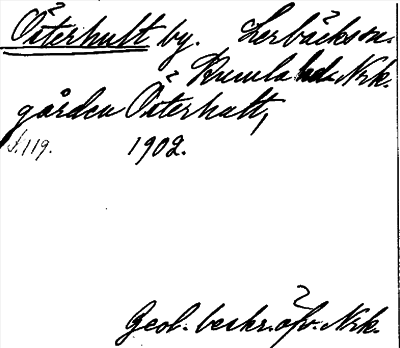 Österhult by. Lerbäcks sn.
Kumla hd. Nrk.
gården Österhult,
s. 119. 1902.
Geol. beskr. öfv. Nrk.